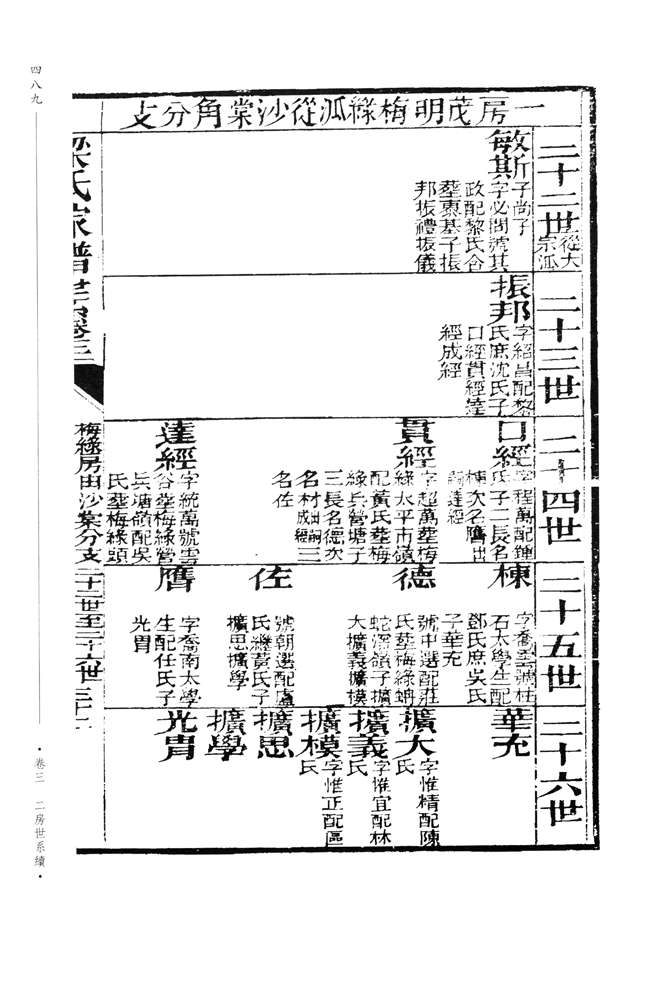 一房茂明梅綠泒從沙棠角分支
二十二世
從大
宗泒
敏斯
其
子尚子
字必問號其
政配黎氏合
塟東基子振
邦振禮振儀
二十三世
振邦
字紹昌配黎
氏庶沈氏子
口經貫經達
經成經
二十四世
口經
字程萬配鍾
氏子二長名
棟次名膺出
嗣達經
貫經
字超萬塟梅
綠太平市嶺
配黃氏塟梅
綠兵營塘子
三長名德次
名材出嗣成經三
名佐
達經
字統萬號雲
谷塟梅綠營
兵塘嶺配吳
氏塟梅綠頭
二十五世
棟
字喬雲號柱
石太學生配
鄧氏庶吳氏
子華充
德
號中選配莊
氏塟梅綠蚺
蛇濘嶺子擴
大擴義擴模
佐
號朝選配盧
氏繼黃氏子
擴思擴學
膺
字喬南太學
生配任氏子
光胄
二十六世
華充
擴大
字惟精配陳
氏
擴義
字惟宜配林
氏
擴模
字惟正配區
氏
擴思
擴學
光胄
梁氏家譜 卷三
梅綠房由沙棠分支二十二世至二十六世
四八九
·卷三 二房世系續·